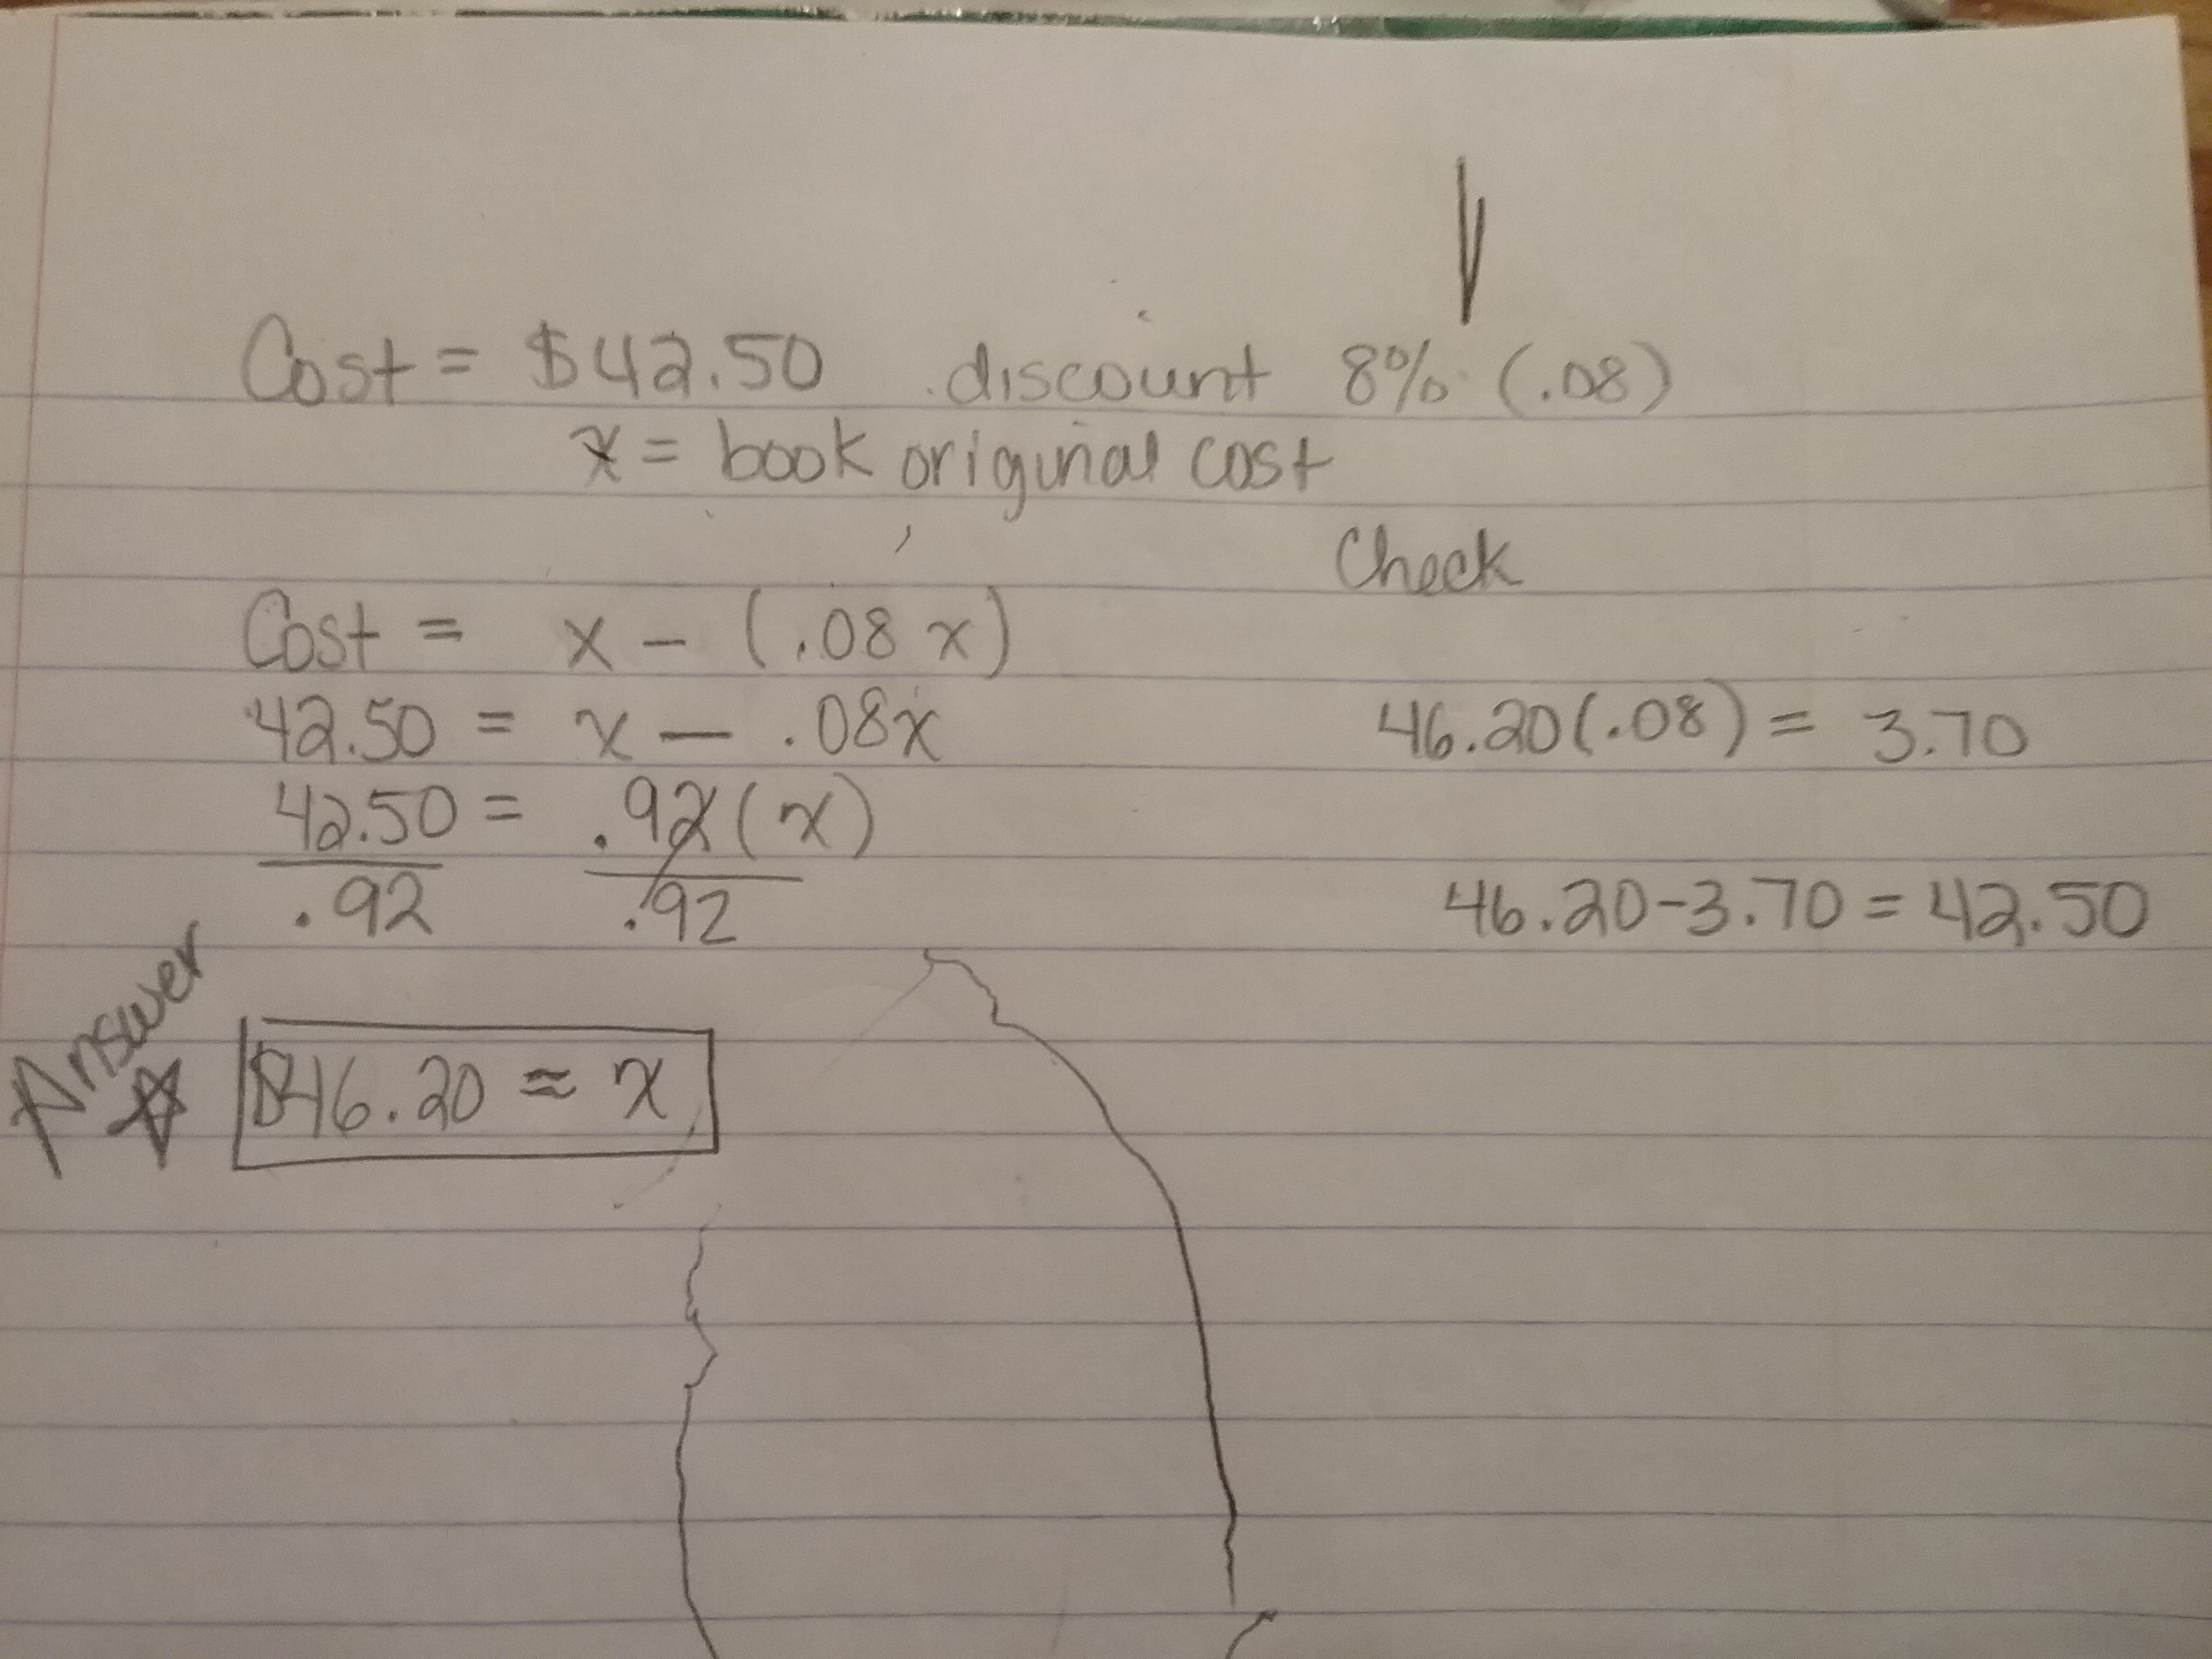 Cost = $42.50 discount 8% (.08)
x = book original cost
Check
Cost = x - (.08x)
42.50 = x - .08x
46.20(.08) = 3.70
42.50 = .92(x)
.92 .92
46.20-3.70 = 42.50
Answer
$46.20 ≈ x